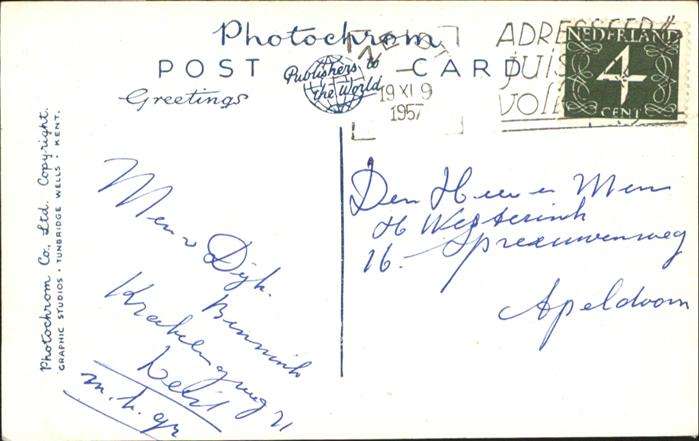 Photochrom
POST CARD
Publishers to
the World
Greetings
19 XI 9
1957
ADRESSEER
JUIS
VOLL
NEDERLAND
4
CENT
Photochrom Co., Ltd. Copyright.
GRAPHIC STUDIOS • TUNBRIDGE WELLS • KENT.
Dijk
Bennink
21
Delft
Den Heer en Mevr
H Wesserink
Spreeuwenweg
16
Apeldoorn